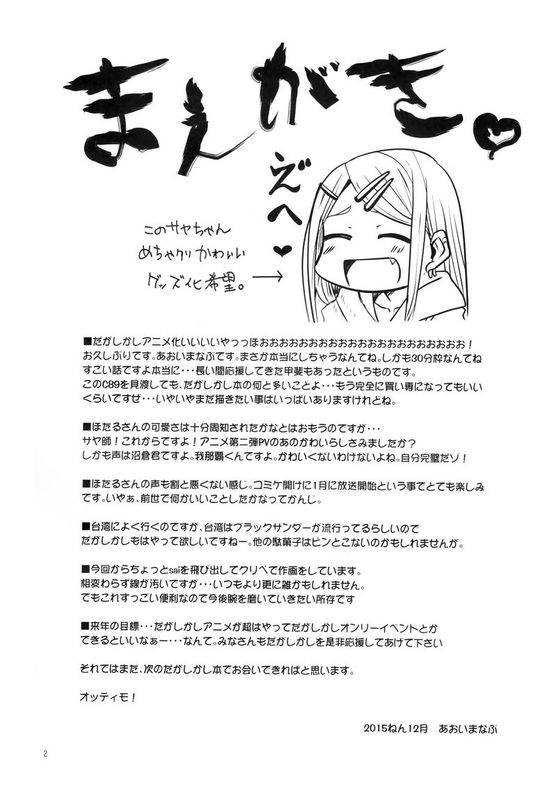 まえがき♥
えへ♥
このサヤちゃん
めちゃクソかわいい
グッズ化希望。→
■だがしかしアニメ化いいいいやっっほおおおおおおおおおおおおおおおおおおおおお！
お久しぶりです。あおいまなぶです。まさか本当にしちゃうなんてね。しかも30分枠なんてね
すごい話ですよ本当に・・・長い間応援してきた甲斐もあったというものです。
このC89を見渡しても、だがしかし本の何と多いことよ・・・もう完全に買い専になってもいい
くらいですぜ・・・いやいやまだ描きたい事はいっぱいありますけれどね。
■ほたるさんの可愛さは十分周知されたかなとはおもうのですが・・・
サヤ師！これからですよ！アニメ第二弾PVのあのかわいらしさみましたか？
しかも声は沼倉君ですよ。我那覇くんですよ。かわいくないわけないよね。自分完璧だゾ！
■ほたるさんの声も割と悪くない感じ。コミケ開けに1月に放送開始という事でとても楽しみ
です。いやぁ、前世で何かいいことしたかなってかんじ。
■台湾によく行くのですが、台湾はブラックサンダーが流行ってるらしいので
だがしかしもはやって欲しいですねー。他の駄菓子はピンとこないのかもしれませんが。
■今回からちょっとsaiを飛び出してクリペで作画をしています。
相変わらず線が汚いですが・・・いつもより更に雑かもしれません。
でもこれすっごい便利なので今後腕を磨いていきたい所存です
■来年の目標・・・だがしかしアニメが超はやってだがしかしオンリーイベントとか
できるといいなぁー・・・なんて。みなさんもだがしかしを是非応援してあげて下さい
それではまた、次のだがしかし本でお会いできればと思います。
オッティモ！
2015ねん12月　あおいまなぶ
2